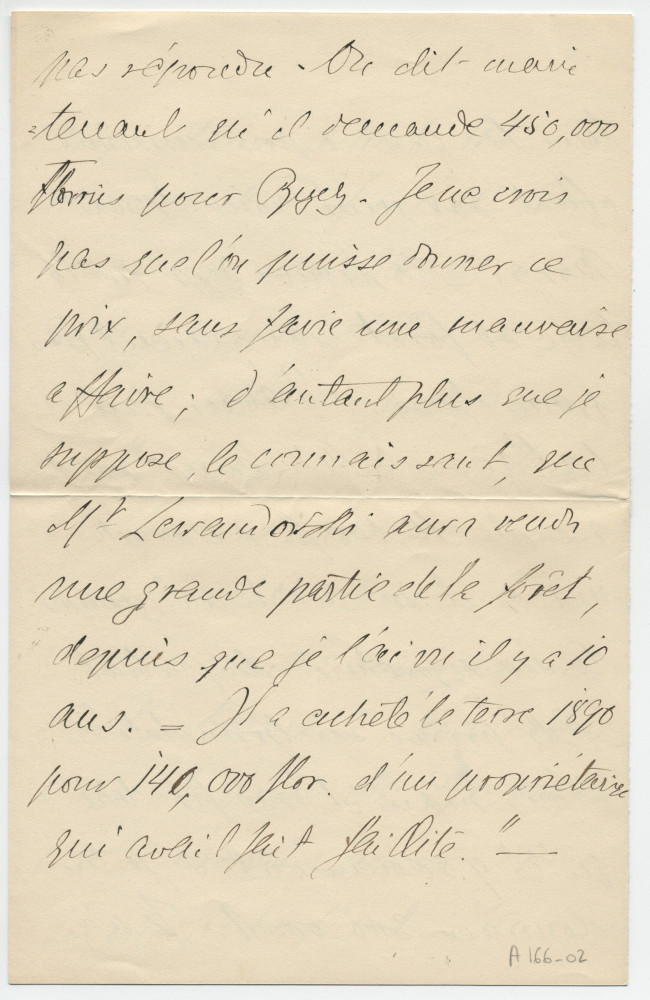 pas répondu. On dit main
=tenant qu'il demande 450,000
florins pour Byez. Je ne crois
pas que l'on puisse donner ce
prix, sans faire une mauvaise
affaire; d'autant plus que je
suppose, le connaissant, que
Mr Lewandowski aura vendu
une grande partie de la forêt,
depuis que je l'ai vu il y a 10
ans. = Il a acheté la terre 1890
pour 140,000 flor. d'un propriétaire
qui avait fait faillite." —
A 166-02